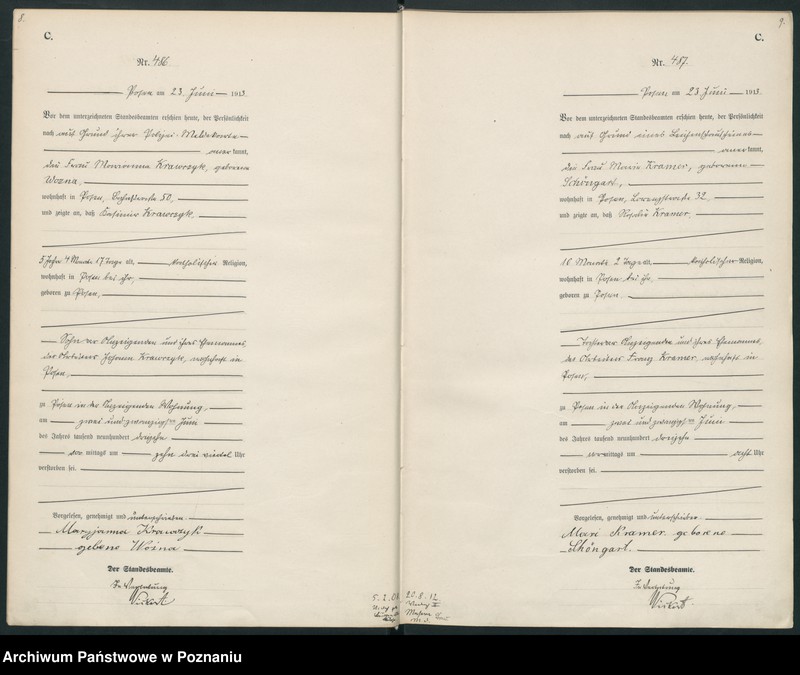 8.
C.
Nr. 486
Posen am 23. Juni 1913.
Vor dem unterzeichneten Standesbeamten erschien heute, der Persönlichkeit
nach auf Grund ihrer Polizei-Meldekarte
anerkannt,
die Frau Marianna Krawczyk, geborene
Wozna,
wohnhaft in Posen, 50,
und zeigte an, daß Kasimir Krawczyk,
5 Jahre 4 Monate 17 Tage alt, katholischer Religion,
wohnhaft in Posen bei ihr,
geboren zu Posen,
Sohn der Anzeigenden und ihres Ehemannes,
des Arbeiters Johann Krawczyk, wohnhaft in
Posen,
zu Posen in der Anzeigenden Wohnung,
am zwei und zwanzigsten Juni
des Jahres tausend neunhundert dreizehn
vormittags um zehn drei viertel Uhr
verstorben sei.
Vorgelesen, genehmigt und unterschrieben
Maryjanna Krawczyk
gebene Woźna
Der Standesbeamte.
In Vertretung
5. 2. 08
9.
C.
Nr. 487.
Posen am 23. Juni 1913.
Vor dem unterzeichneten Standesbeamten erschien heute, der Persönlichkeit
nach auf Grund eines Leichenschauscheines
anerkannt,
die Frau Marie Kramer, geborene
Schöngart,
wohnhaft in Posen, 32,
und zeigte an, daß Rosalie Kramer,
10 Monate 2 Tage alt, katholischer Religion,
wohnhaft in Posen bei ihr,
geboren zu Posen,
Tochter der Anzeigenden und ihres Ehemannes,
des Arbeiters Franz Kramer, wohnhaft in
Posen,
zu Posen in der Anzeigenden Wohnung,
am zwei und zwanzigsten Juni
des Jahres tausend neunhundert dreizehn
vormittags um acht Uhr
verstorben sei.
Vorgelesen, genehmigt und unterschrieben
Mari Kramer geborene
Schöngart.
Der Standesbeamte.
In Vertretung
20. 8. 12
Archiwum Państwowe w Poznaniu